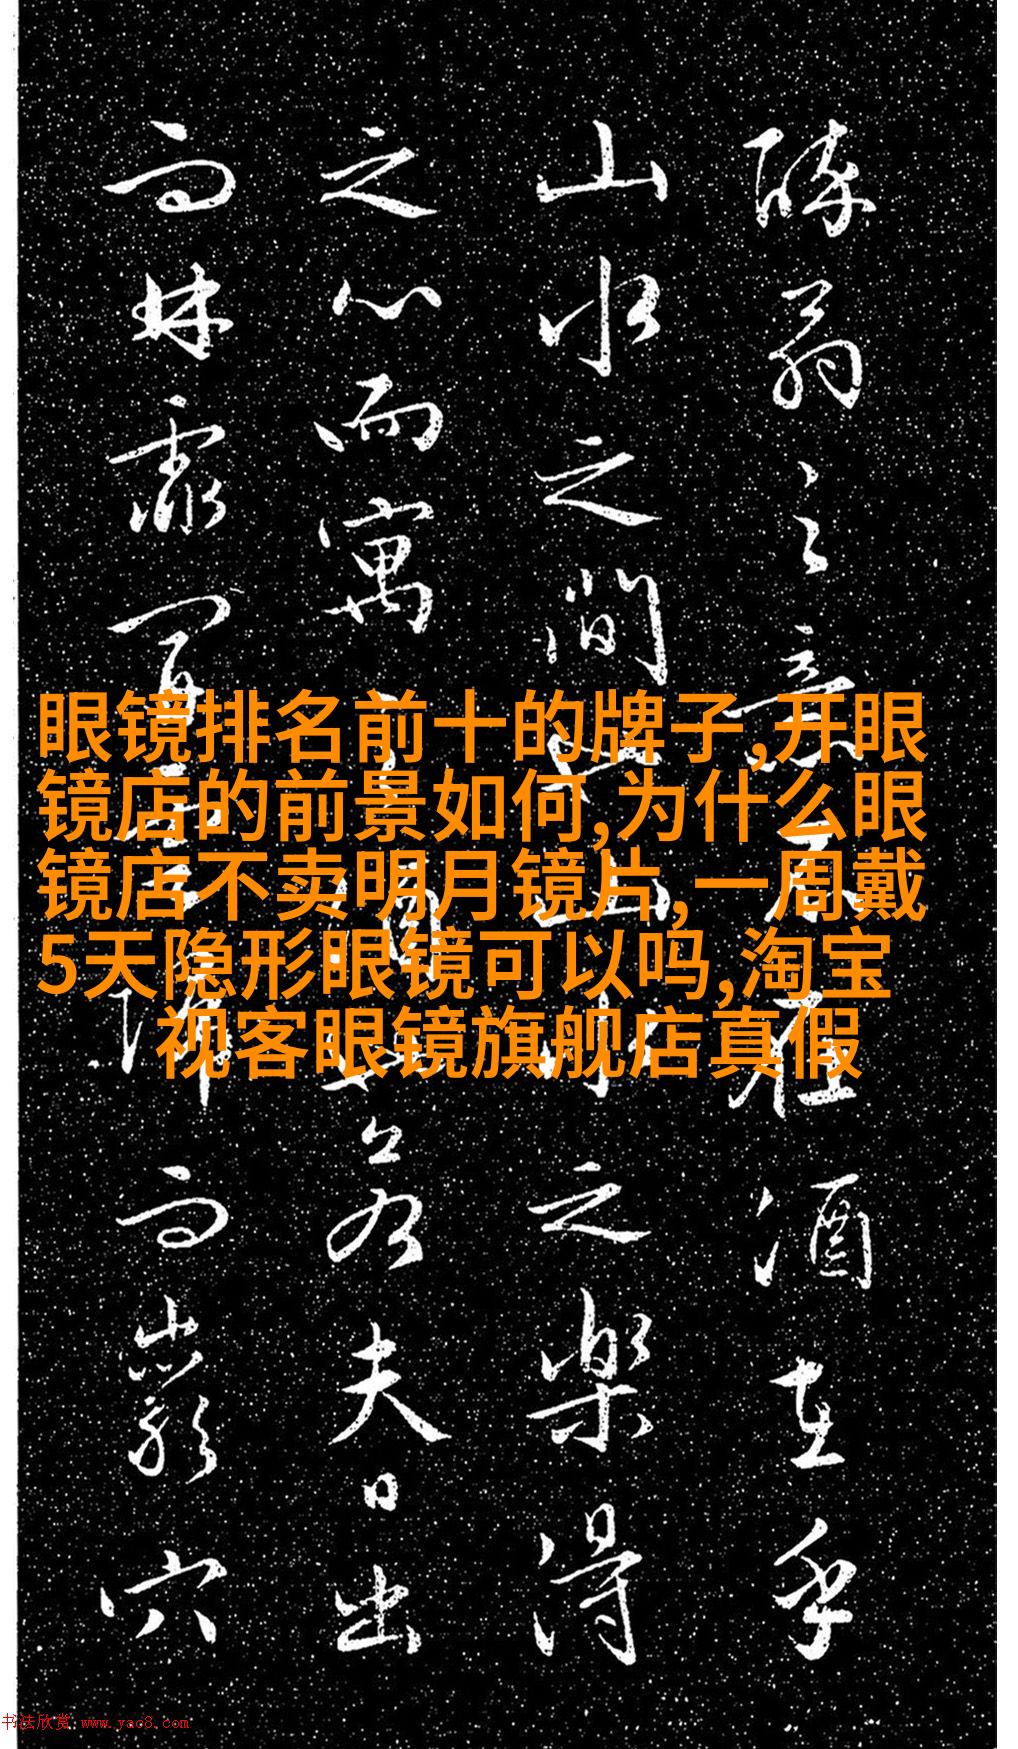 眼镜排名前十的牌子,开眼
镜店的前景如何,为什么眼
镜店不卖明月镜片,一周戴
5天隐形眼镜可以吗,淘宝
视客眼镜旗舰店真假
醉翁之意不在酒在乎
山水之間也山水之樂得
之心而寓之酒也若夫日出
而林霏開雲歸而巖穴
书法欣赏 www.yac8.com